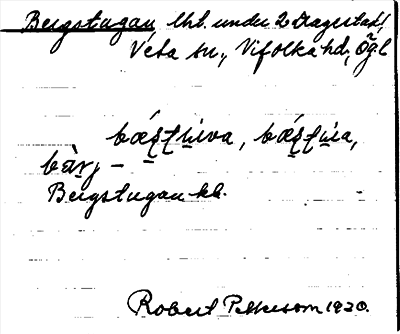 Bergstugan lht. under 2 Hagerstad,
Veta sn., Vifolka hd, Ög.l
bæ̀ʂʈɯva, bæ̀ʂʈɯa,
bàrj –
Bergstugan kk.
Robert Pettersom 1930.